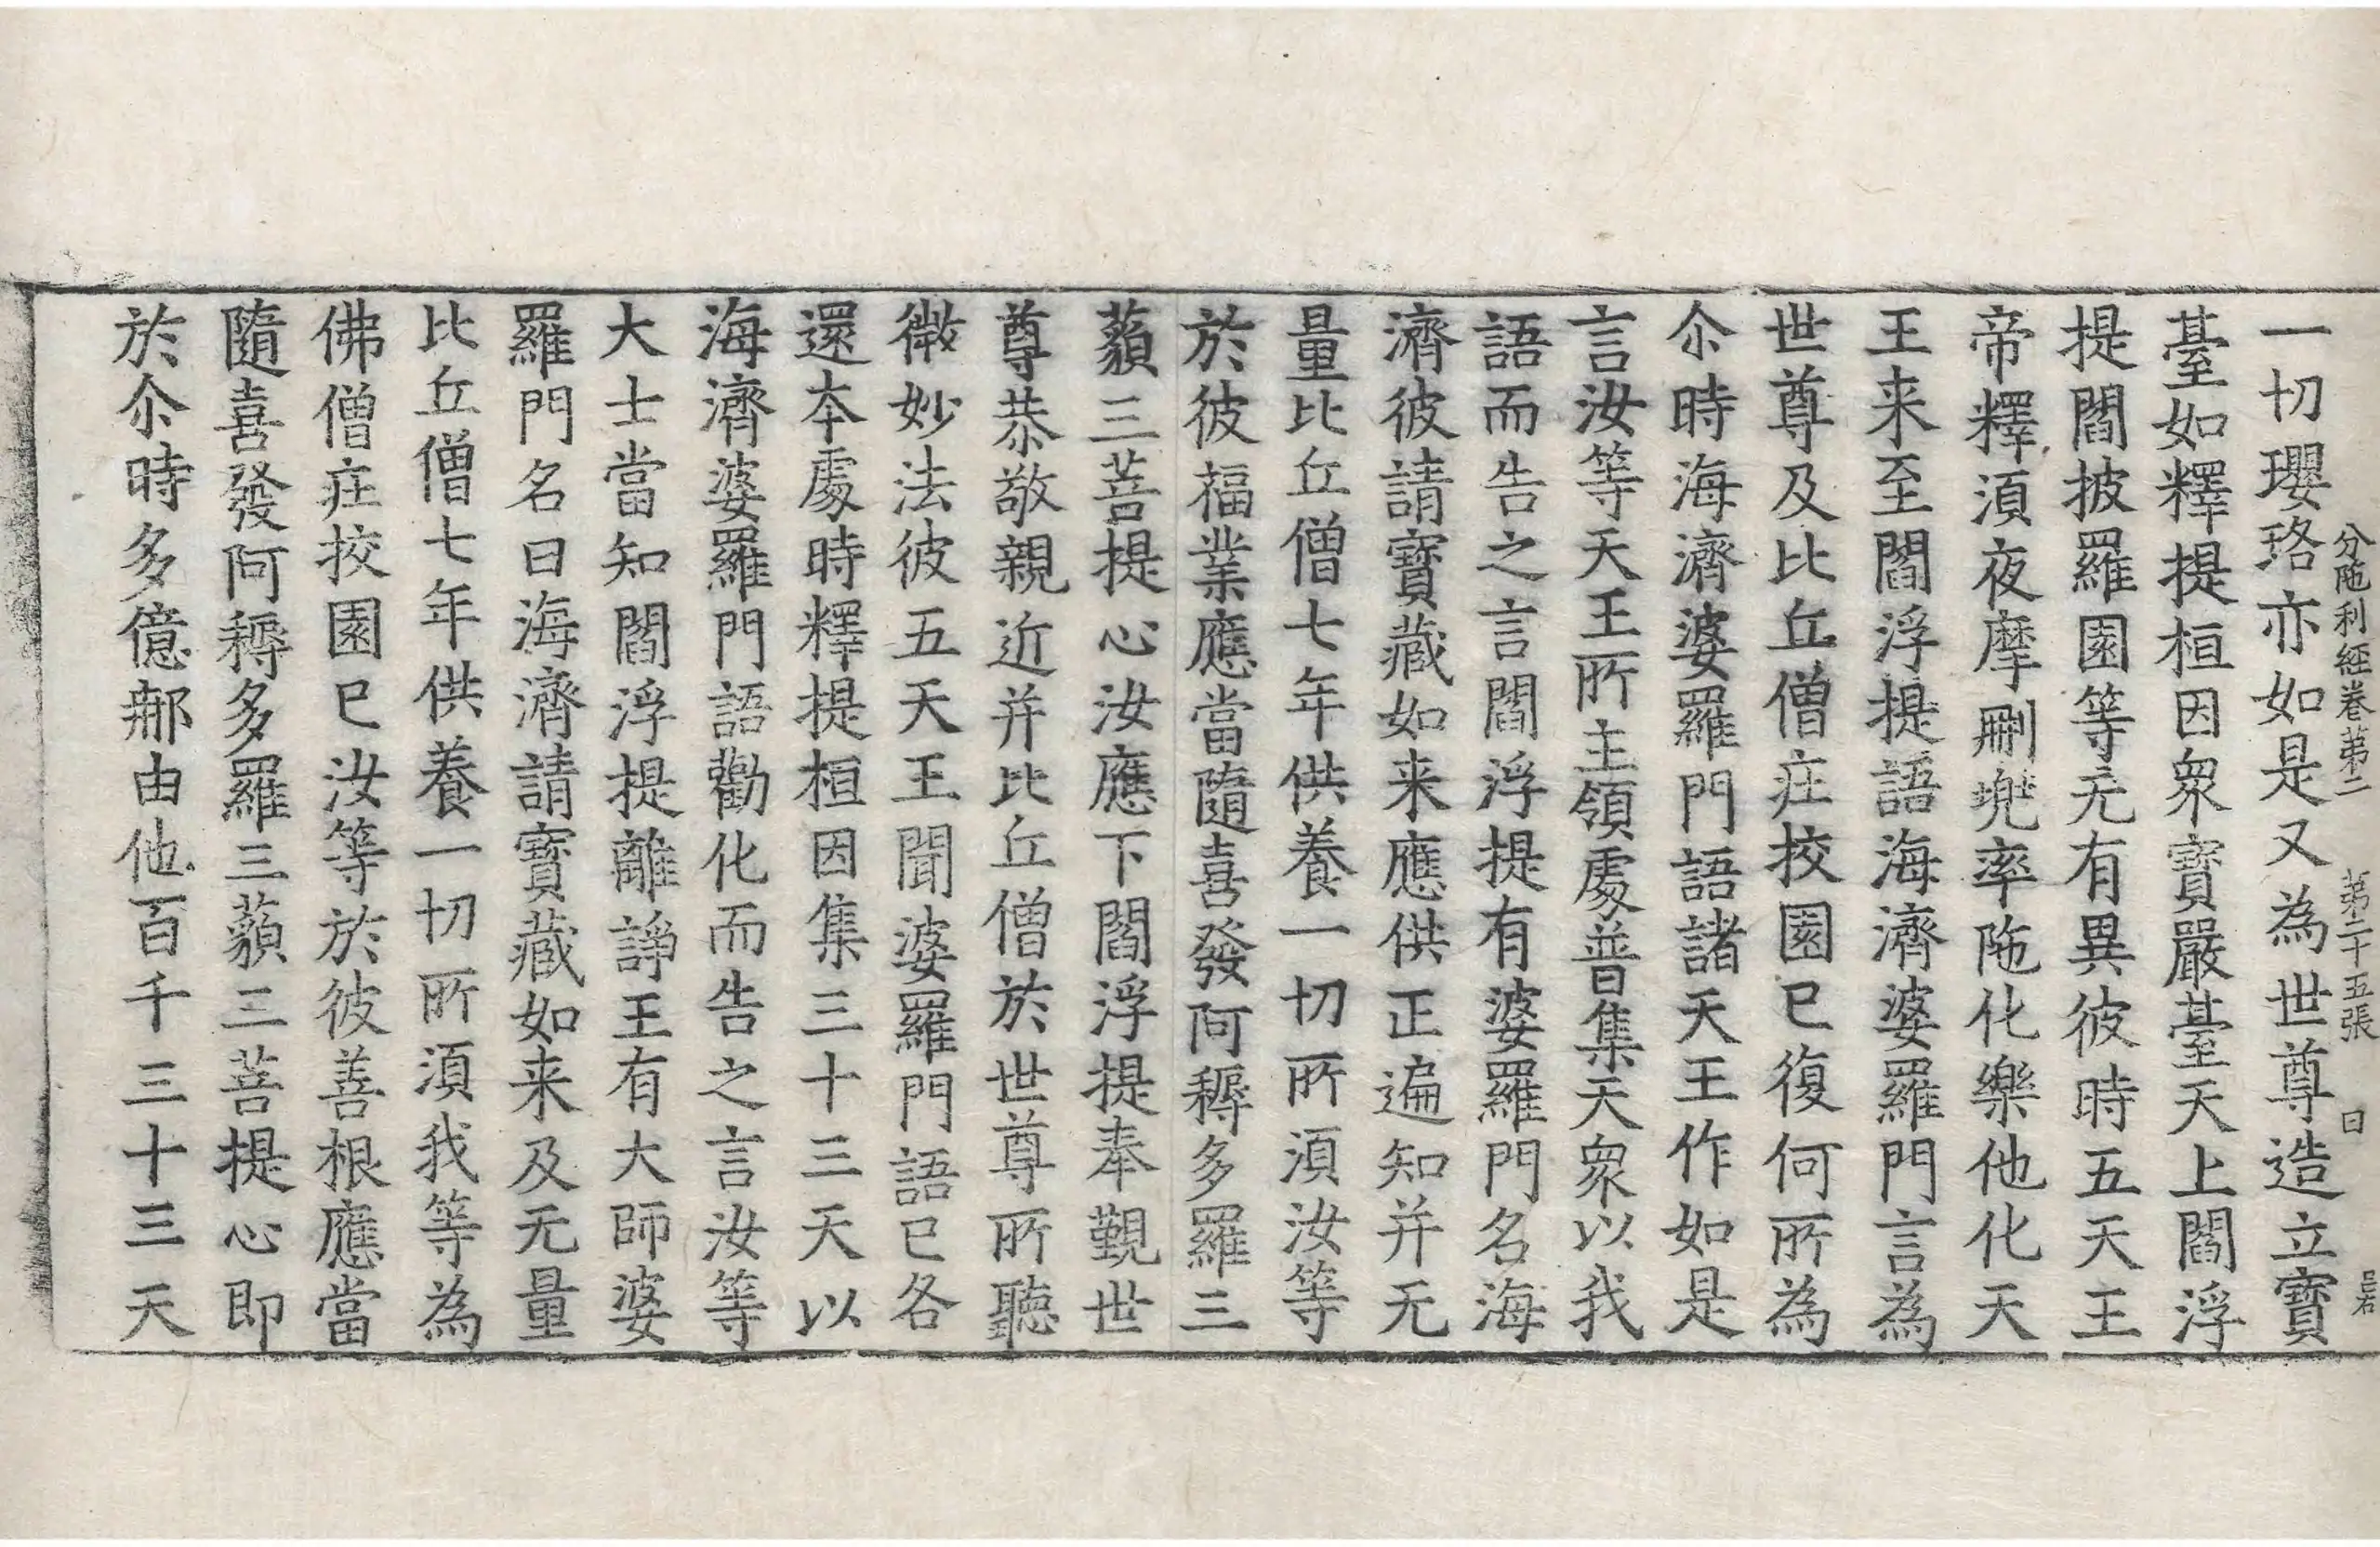 分陁利經卷第二 第二十五張 曰
一切瓔珞亦如是又為世尊造立寶
臺如釋提桓因衆寶嚴臺天上閻浮
提閻披羅園等无有異彼時五天王
帝釋湏夜摩刪兜率陁化樂他化天
王来至閻浮提語海濟婆羅門言為
世尊及比丘僧庄挍園已復何所為
尒時海濟婆羅門語諸天王作如是
言汝等天王所主領處普集天衆以我
語而告之言閻浮提有婆羅門名海
濟彼請寶藏如来應供正遍知并无
量比丘僧七年供養一切所湏汝等
於彼福業應當隨喜發阿耨多羅三
藐三菩提心汝應下閻浮提奉覲世
尊恭敬親近并比丘僧於世尊所聽
微妙法彼五天王聞婆羅門語已各
還本處時釋提桓因集三十三天以
海濟婆羅門語勸化而告之言汝等
大士當知閻浮提離諍王有大師婆
羅門名曰海濟請寶藏如来及无量
比丘僧七年供養一切所湏我等為
佛僧庄挍園已汝等於彼善根應當
隨喜發阿耨多羅三藐三菩提心即
於尒時多億那由他百千三十三天